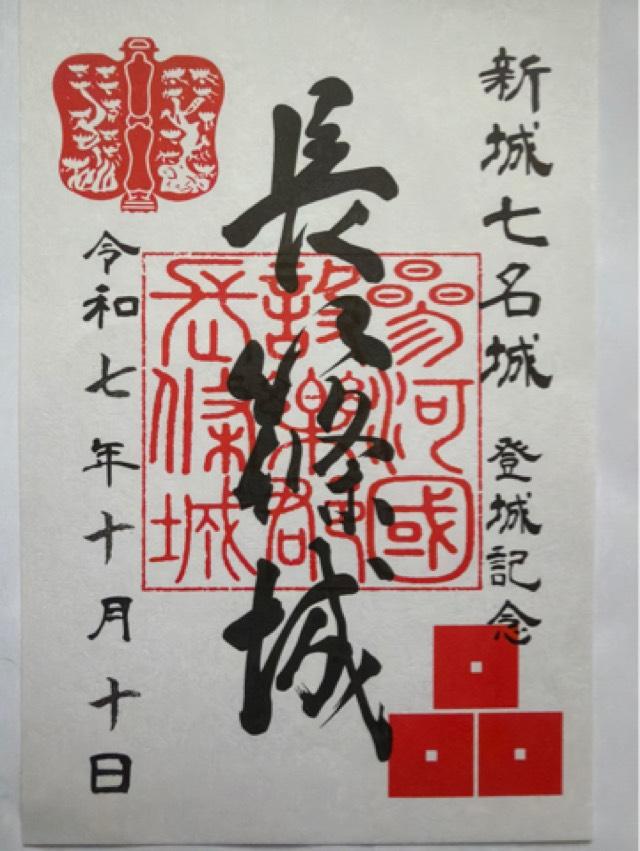 新城七名城 登城記念
長篠城
參河國
設樂郡
長篠城
令和七年十月十日